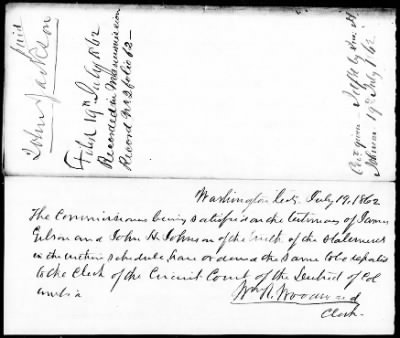 John Jackson
Filed 19th July 1862
Recorded in Manumission
Record No 2 folio 62
given
19th July 1862
Washington City July 19, 1862
The Commissioners being satisfied on the testimony of James
Gibson and John H. Johnson of the truth of the statements
in the within schedule, have ordered the same to be
to the Clerk of the Circuit Court of the District of Col
umbia
Wm R. Woodward
Clerk.